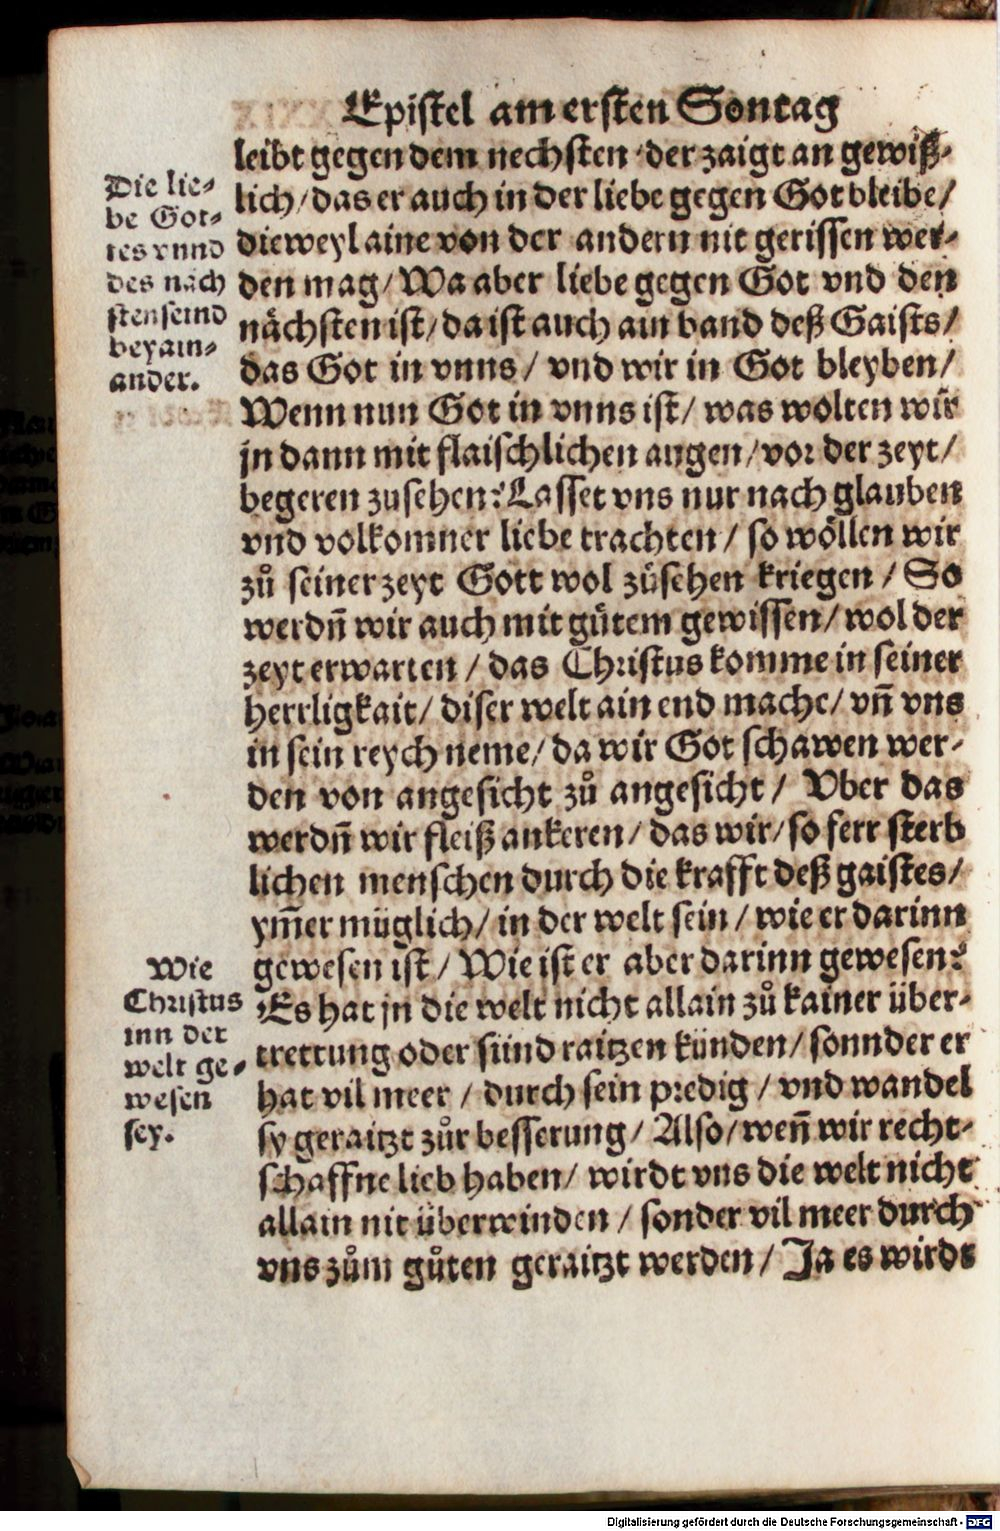 Epistel am ersten Sontag
leibt gegen dem nechsten der zaigt an gewiß⸗
lich/ das er auch in der liebe gegen Got bleibe/
dieweyl aine von der andern nit gerissen wer⸗
den mag/ Wa aber liebe gegen Got vnd den
nächsten ist/ da ist auch ain band deß Gaists/
das Got in vnns/ vnd wir in Got bleyben/
Wenn nun Got in vnns ist/ was wolten wir
jn dann mit flaischlichen augen/ vor der zeyt/
begeren zusehen? Lasset vns nur nach glauben
vnd volkomner liebe trachten/ so wöllen wir
zů seiner zeyt Gott wol zůsehen kriegen/ So
werdñ wir auch mit gůtem gewissen/ wol der
zeyt erwarten/ das Christus komme in seiner
herrligkait/ diser welt ain end mache/ vñ vns
in sein reych neme/ da wir Got schawen wer⸗
den von angesicht zů angesicht/ Vber das
werdñ wir fleiß ankeren/ das wir/ so ferr sterb
lichen menschen durch die krafft deß gaistes/
ym̃er müglich/ in der welt sein/ wie er darinn
gewesen ist/ Wie ist er aber darinn gewesen?
Es hat jn die welt nicht allain zů kainer über⸗
trettung oder sünd raitzen künden/ sonnder er
hat vil meer/ durch sein predig/ vnd wandel
sy geraitzt zůr besserung/ Also/ weñ wir recht⸗
schaffne lieb haben/ wirdt vns die welt nicht
allain nit überwinden/ sonder vil meer durch
vns zům gůten geraitzt werden/ Ja es wirdt
Die lie⸗
be Got⸗
tes vnnd
des näch
sten seind
beyain⸗
ander.
Wie
Christus
inn der
welt ge⸗
wesen
sey.
Digitalisierung gefördert durch die Deutsche Forschungsgemeinschaft - DFG